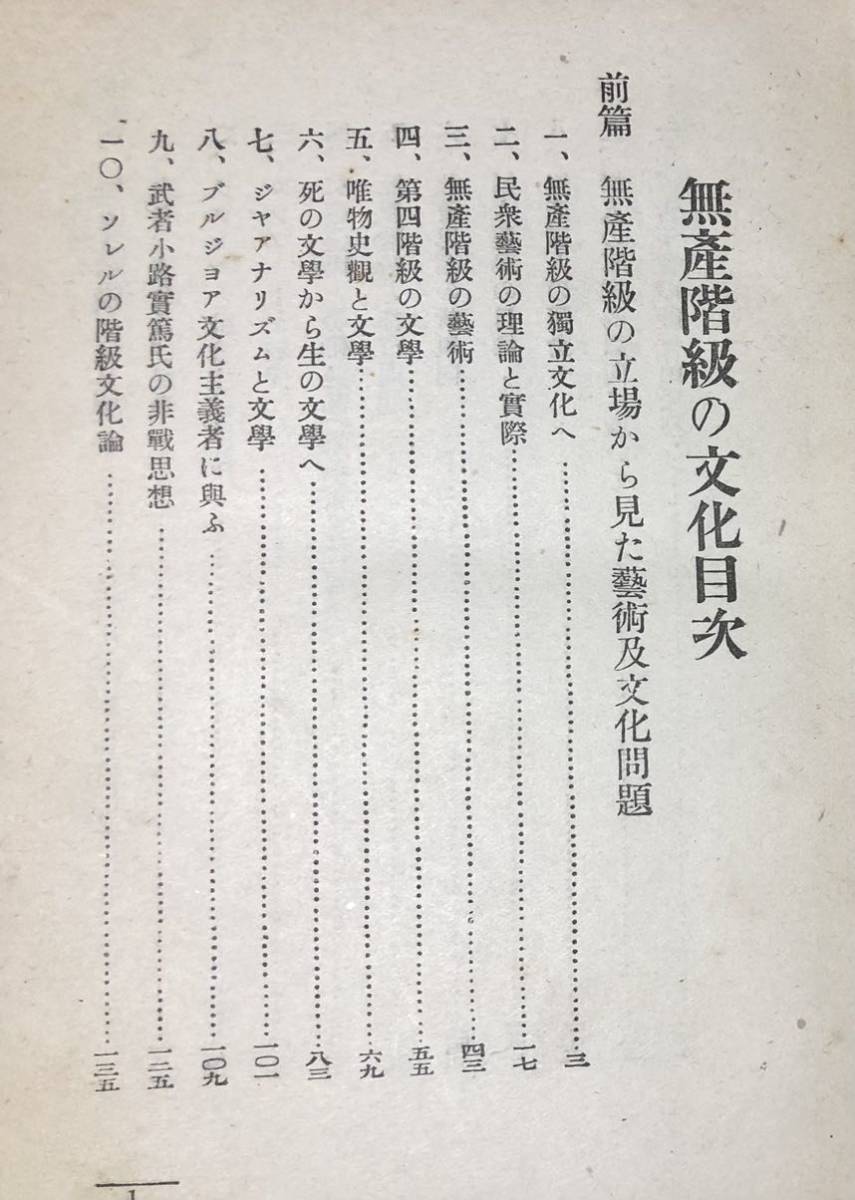 無產階級の文化目次
前篇　無產階級の立場から見た藝術及文化問題
一、無產階級の獨立文化へ……………………三
二、民衆藝術の理論と實際……………………一七
三、無產階級の藝術……………………四三
四、第四階級の文學……………………五五
五、唯物史觀と文學……………………六九
六、死の文學から生の文學へ……………………八三
七、ジヤアナリズムと文學……………………一〇一
八、ブルジョア文化主義者に與ふ……………………一〇九
九、武者小路實篤氏の非戰思想……………………一二五
一〇、ソレルの階級文化論……………………一三五
1